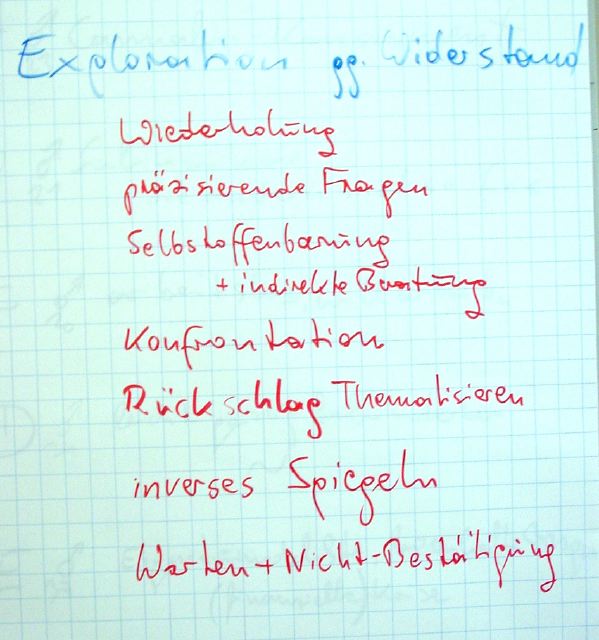 Exploration gg. Widerstand
Wiederholung
präzisierende Fragen
Selbstoffenbarung
+ indirekte Beratung
Konfrontation
Rückschlag Thematisieren
inverses Spiegeln
Warten + Nicht-Bestätigung